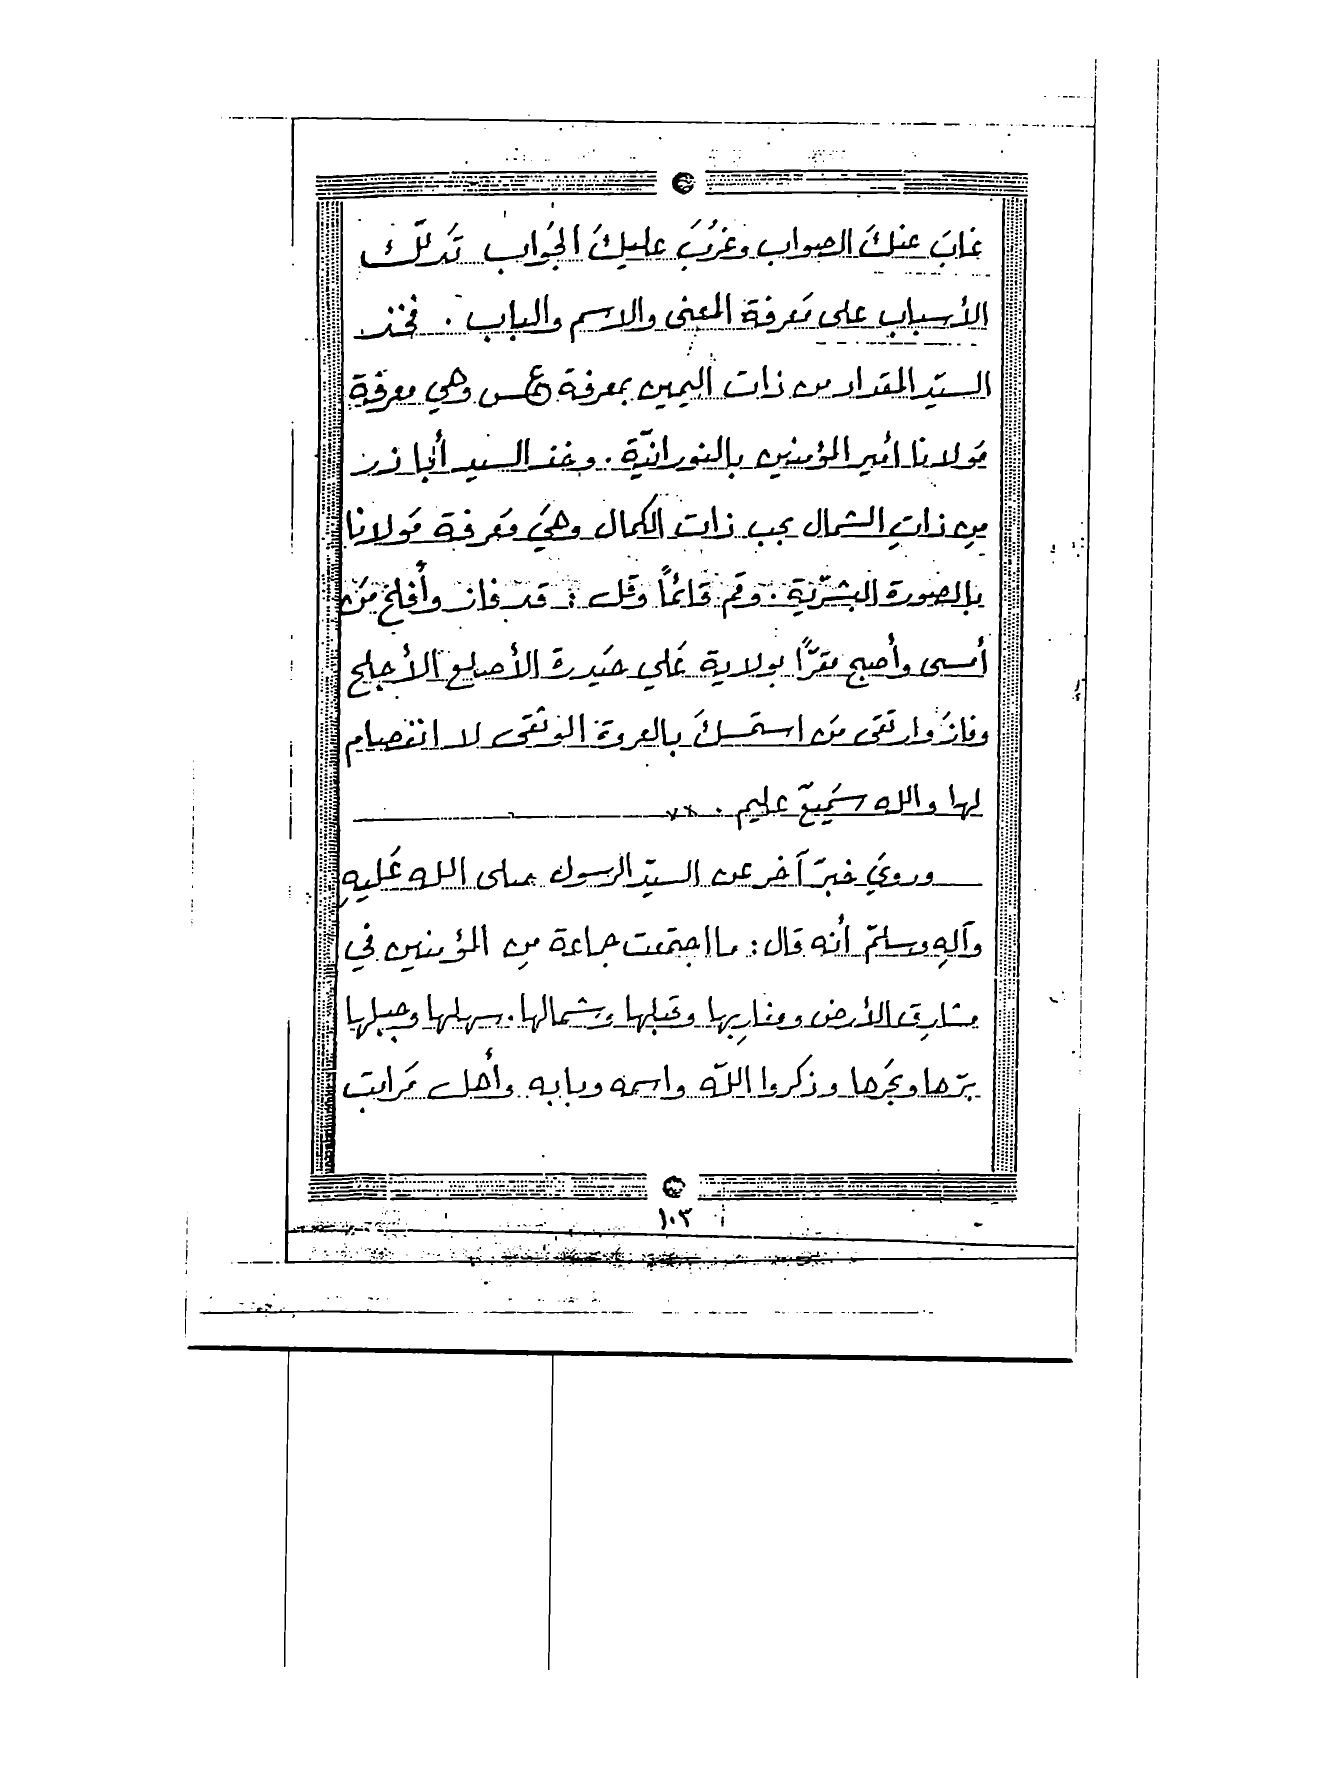 غابَ عنكَ الصواب وعَزُبَ عليكَ الجَواب تَدلّك
الأسباب على مَعرفة المعنى والاسم والباب . فخذ
السيّد المقداد من ذات اليمين بمعرفة ع س وهي معرفة
مَولانا أمير المؤمنين بالنورانيّة . وخذ السيد أبا ذر
مِن ذاتِ الشمال بحب ذات الكمال وهيَ مَعرفة مَولانا
بالصورة البشَريّة . وقم قائماً وقل : قد فاز وأفلحَ مَن
أمسى وأصبح مقرّاً بولاية عَلي حَيدرة الأصلع الأجلح
وفازَ وارتَقى مَن استمسكَ بالعروة الوثقى لا انفصام
لها والله سَميعٌ عليم .
ورويَ خبرٌ آخر عن السيّد الرسول صلى الله عَليهِ
وآلهِ وسلمّ أنه قال : ما اجتمعت جماعة مِن المؤمنين في
مشارق الأرض ومغاربها وقبلها وشمالها . سهلها وجبلها
برّها وبحَرها وذكروا اللّه واسمه وبابه وأهل مَراتب
١٠٣